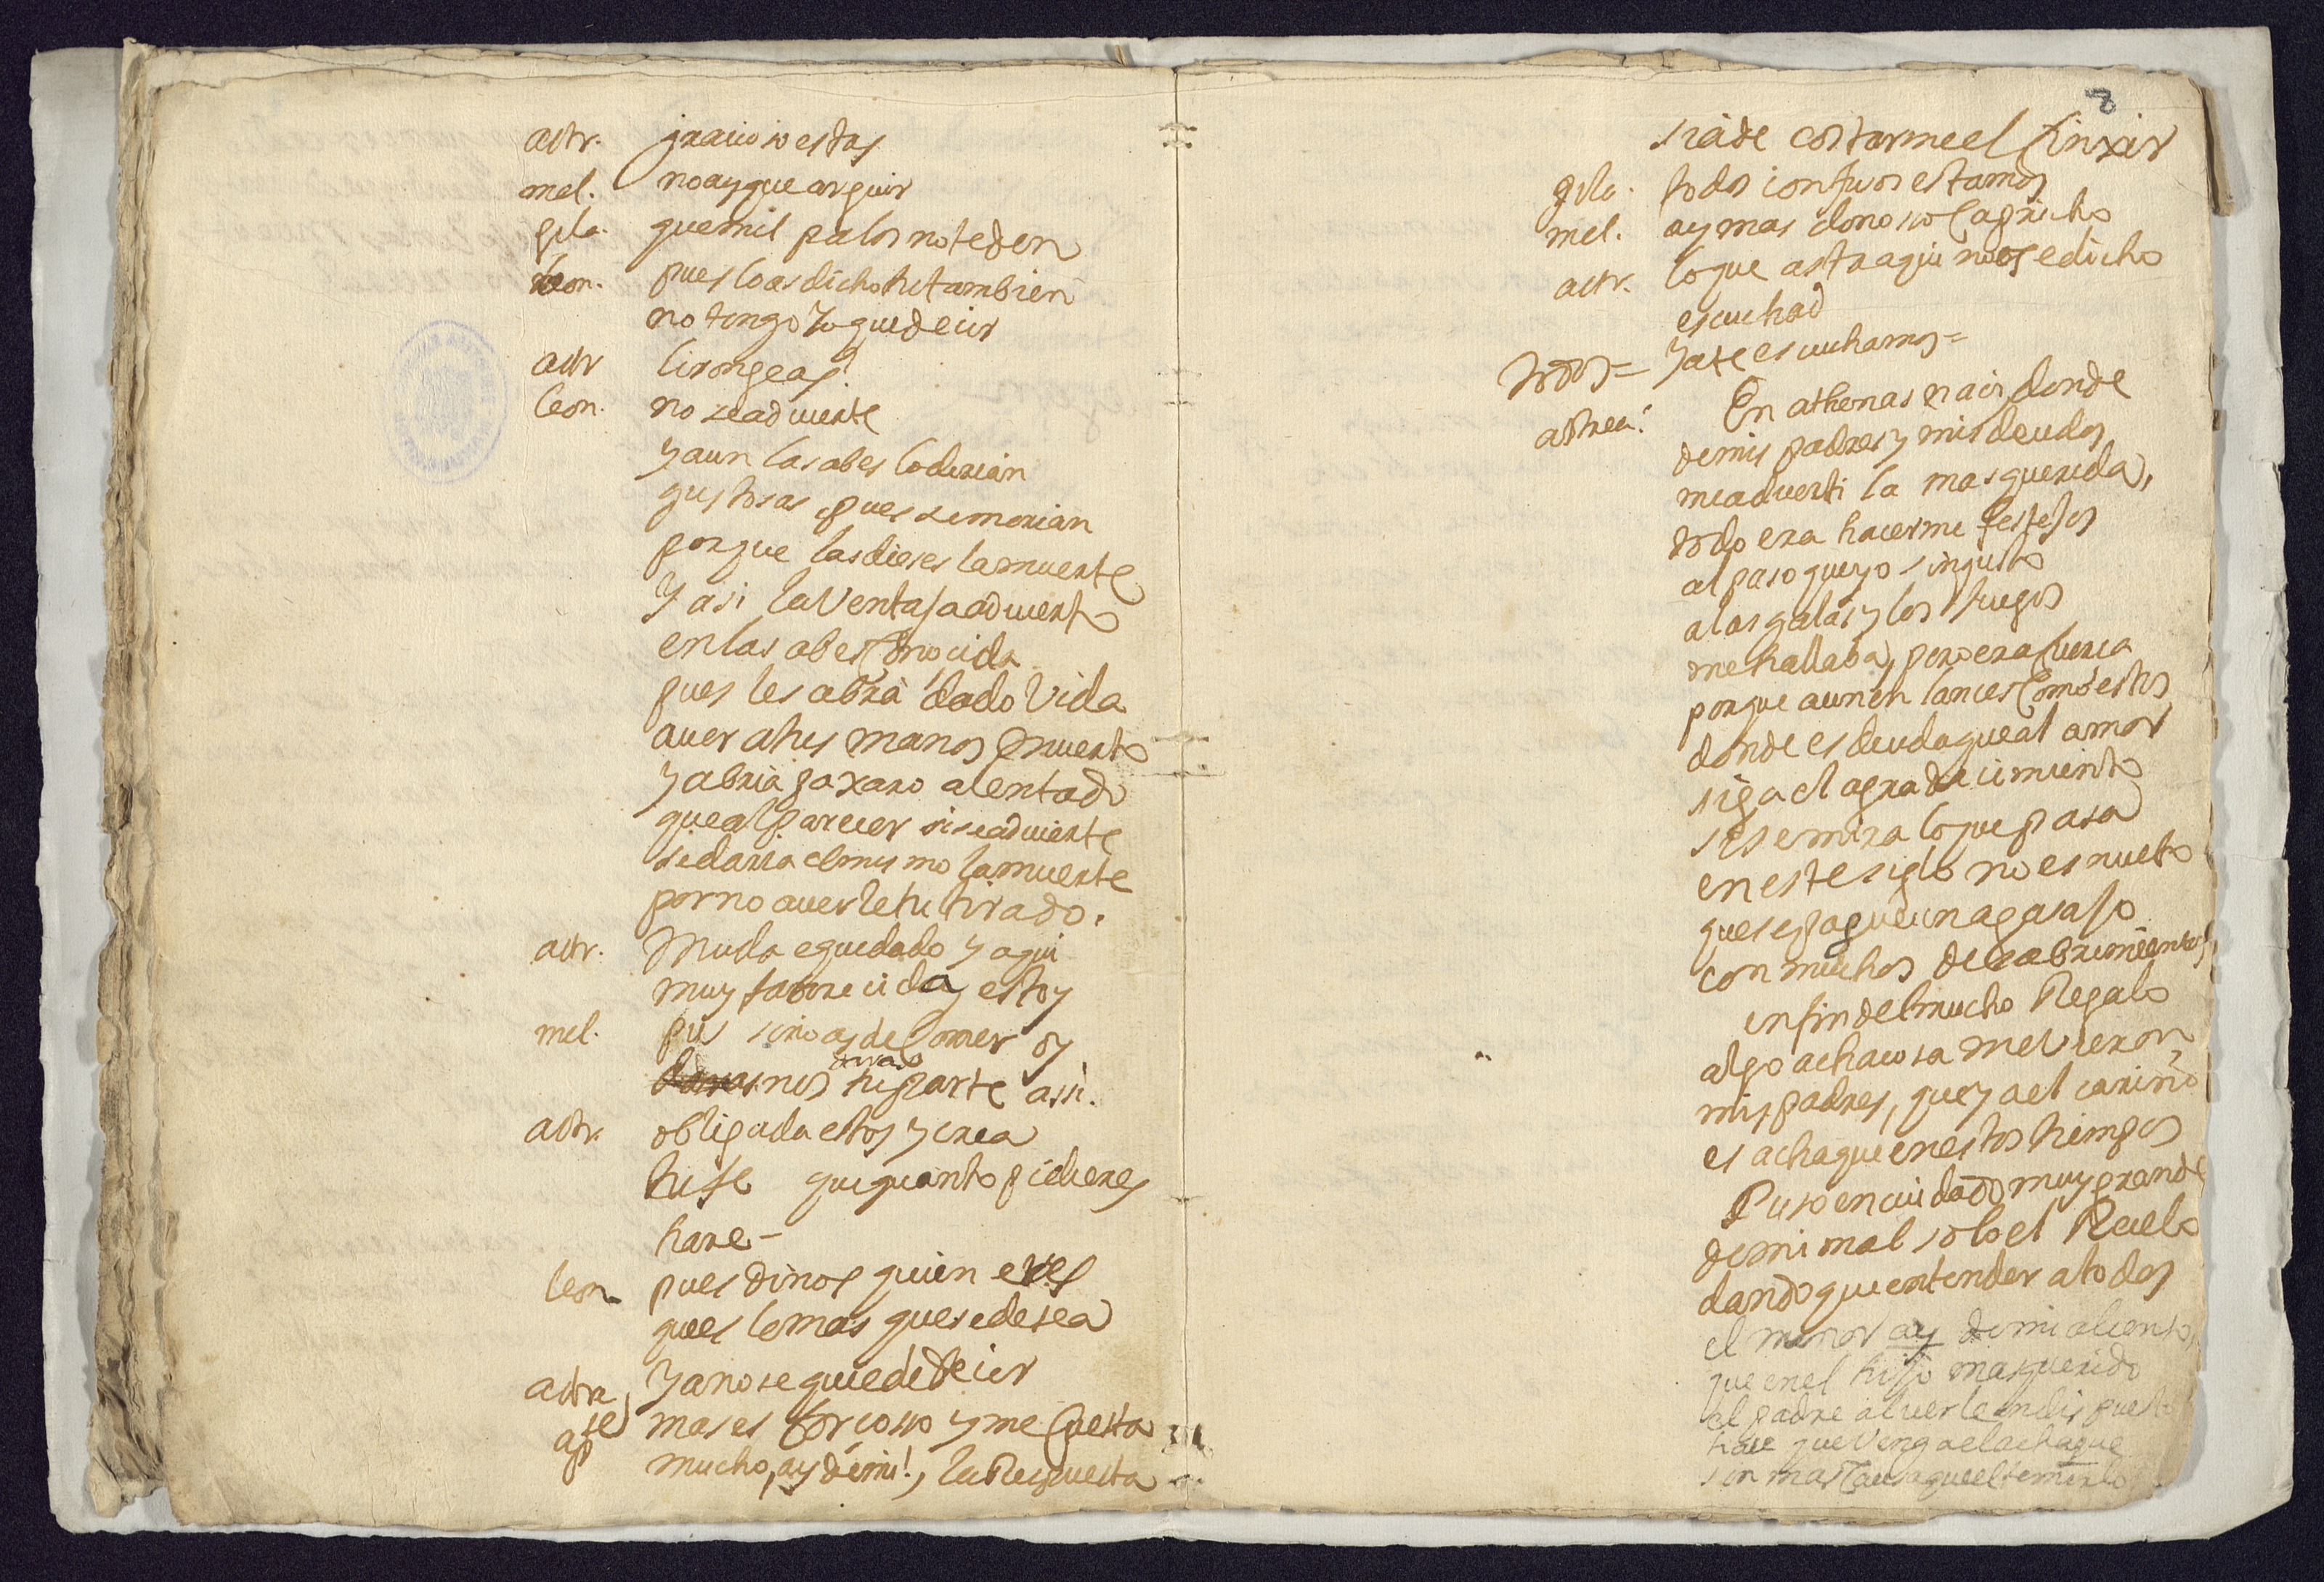 astr. graciosso estas
mel. no ay que arguir
gila. que mil palos no te den
leon. pues lo as dicho tu tambien
no tengo yo que decir
astr lisongeas!
leon. no se advierte
y aun las abes lo dirian
gustosas pues se morian
porque las dieses la muerte
y asi la ventaja advierto
en las abes conocida
pues les abrà dado vida
aver a tus manos muerto
y abria paxaro alentado
que al parecer si se advierte
se daria el mismo la muerte
por no averle tu tirado.
astr. Muda e quedado y aqui
muy faborecida estoy
mel. pues si no as de comer oy
nos tu parte assi.
astr. obligada estoy y crea
tu fe que quanto pidieres
hare-
leon pues dinos quien eres
que es lo mas que se desea
astrea ya no se puede decir
apte mas es forcosso y me cuesta
mucho, ay de mi!, la Respuesta
8
si à de costarme el finxir
gila. todos confusos estamos
mel. ay mas donoso capricho
astr. lo que asta aqui no os e dicho
escuchad
todos= ya te escuchamos=
astrea: En athenas naci, donde
de mis padres y mis deudos
me adverti la mas querida,
todo era hacerme festejos
al paso que yo sin gusto
a las galas y los juegos
me hallaba, pero era fuerca
porque aun en lances como estos
donde es deuda que al amor
siga el agradecimiento
si se mira lo que pasa
en este siglo no es nuebo
que se pague un agasajo
con muchos desabrimientos,
en fin del mucho Regalo
algo achacosa me vieron
mis padres, que ya el cariño
es achaque en estos tiempos
Puso en cuidado muy grande
de mi mal solo el Recelo
dando que entender a todos
el menor ay de mi aliento,
que en el hijo mas querido
el padre al verle indispuesto
hace que venga el achaque
sin mas causa que el temerlo